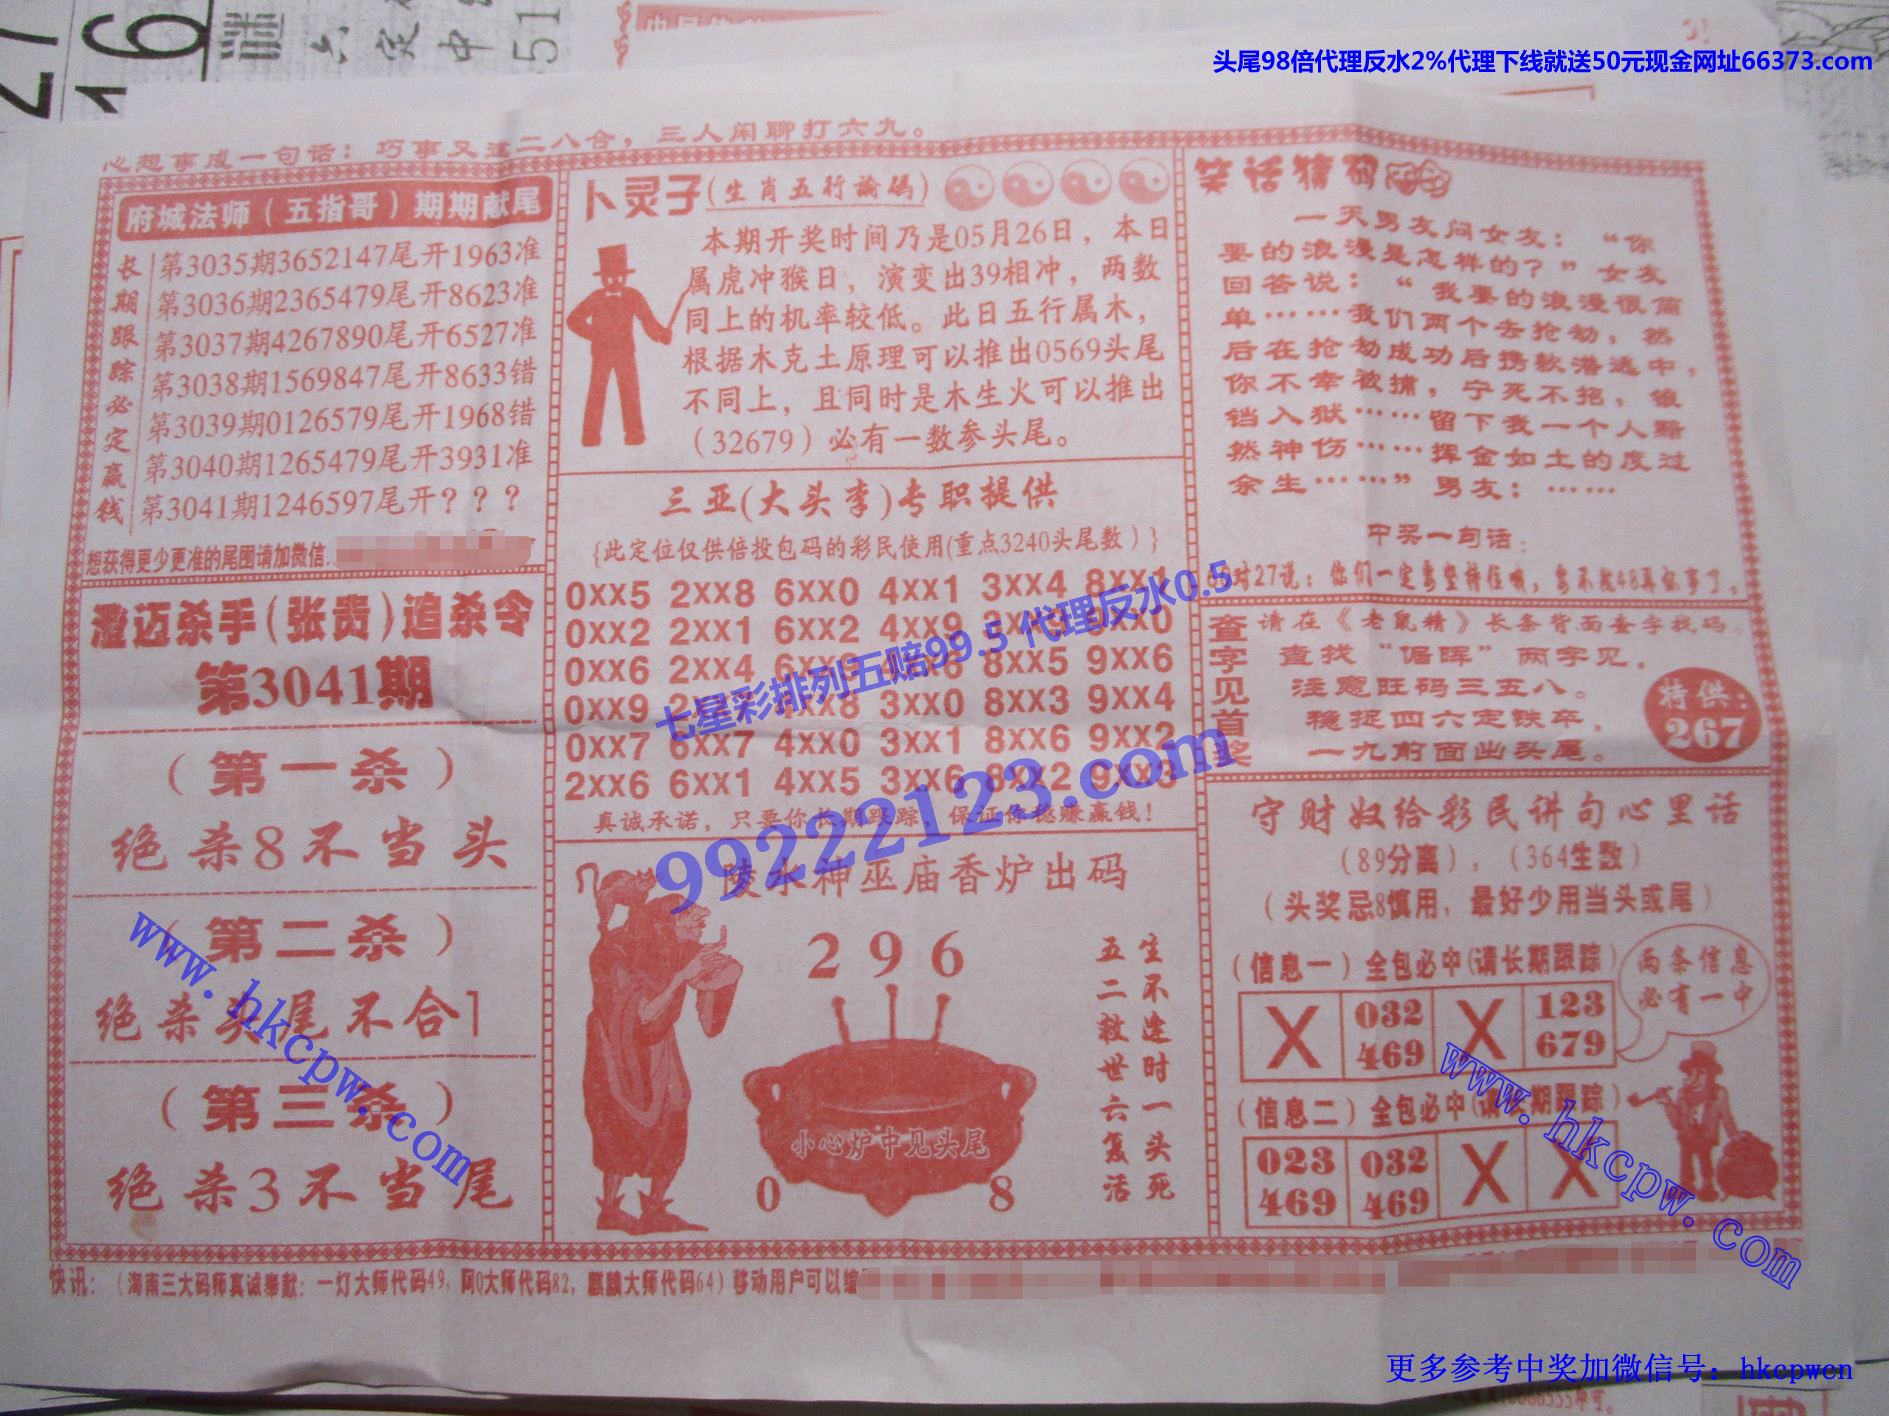 16
51
头尾98倍代理反水2%代理下线就送50元现金网址66373.com
心想事成一句话：巧事又逢二八合，三人闲聊打六九。
府城法师（五指哥）期期献尾
长期跟踪必定赢钱
第3035期3652147尾开1963准
第3036期2365479尾开8623准
第3037期4267890尾开6527准
第3038期1569847尾开8633错
第3039期0126579尾开1968错
第3040期1265479尾开3931准
第3041期1246597尾开？？？
想获得更少更准的尾围请加微信.
澄迈杀手(张贵)追杀令
第3041期
（第一杀）
绝杀8不当头
（第二杀）
绝杀头尾不合1
（第三杀）
绝杀3不当尾
卜灵子(生肖五行论码)
本期开奖时间乃是05月26日，本日
属虎冲猴日，演变出39相冲，两数
同上的机率较低。此日五行属木，
根据木克土原理可以推出0569头尾
不同上，且同时是木生火可以推出
（32679）必有一数参头尾。
三亚(大头李)专职提供
{此定位仅供倍投包码的彩民使用(重点3240头尾数）}
0XX5 2XX8 6XX0 4XX1 3XX4 8XX1
0XX2 2XX1 6XX2 4XX9
0XX6 2XX4 8XX5 9XX6
0XX9 3XX0 8XX3 9XX4
0XX7 6XX7 4XX0 3XX1 8XX6 9XX2
2XX6 6XX1 4XX5 3XX6 8XX2 9XX3
真诚承诺，只要你长期跟踪，保证你稳赚赢钱！
七星彩排列五赔99.5 代理反水0.5
99222123.com
陵水神巫庙香炉出码
296
小心炉中见头尾
0 8
生不逢时一头死
五二救世六复活
笑话猜码
一天男友问女友：“你
要的浪漫是怎样的？”女友
回答说：“我要的浪漫很简
单……我们两个去抢劫，然
后在抢劫成功后携款潜逃中，
你不幸被捕，宁死不招，锒
铛入狱……留下我一个人黯
然神伤……挥金如土的度过
余生……”男友：……
中奖一句话：
对27说：你们一定要坚持住哦，
查字见首奖
请在《老鼠精》长条背面查字找码。
查找“倨晖”两字见，
注意旺码三五八。
稳捉四六定铁卒，
一九前面出头尾。
特供：
267
守财奴给彩民讲句心里话
（89分离），（364生数）
（头奖忌8慎用，最好少用当头或尾）
（信息一）全包必中(请长期跟踪)
X 032 469 X 123 679
两条信息
必有一中
（信息二）全包必中(请长期跟踪)
023 469 032 469 X X
www.hkcpw.com
www.hkcpw.com
快讯：（海南三大码师真诚奉献：一灯大师代码49，阿Q大师代码82，麒麟大师代码64）移动用户可以编
更多参考中奖加微信号：hkcpwcn